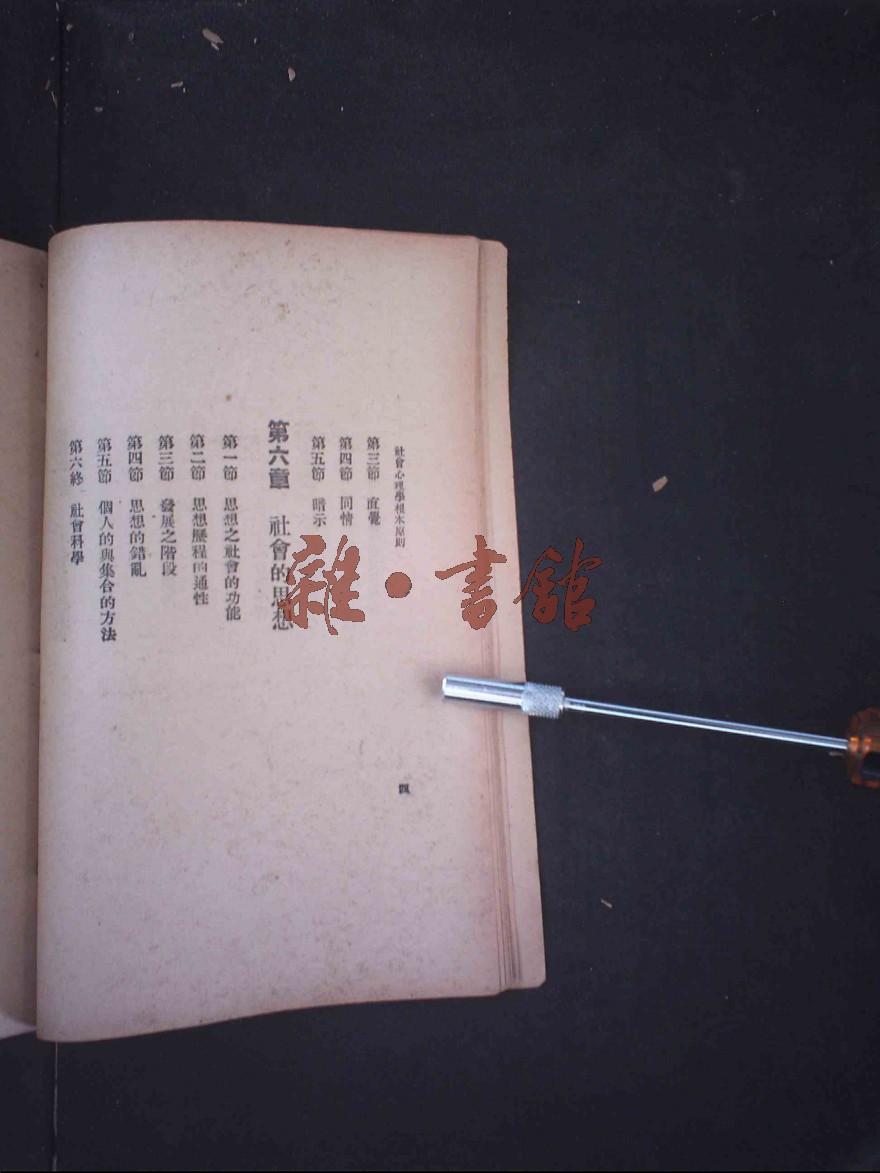 社會心理學根本原則
第三節 直覺
第四節 同情
第五節 暗示
第六章 社會的思想
第一節 思想之社會的功能
第二節 思想歷程的通性
第三節 發展之階段
第四節 思想的錯亂
第五節 個人的與集合的方法
第六終 社會科學
四
雜·書館